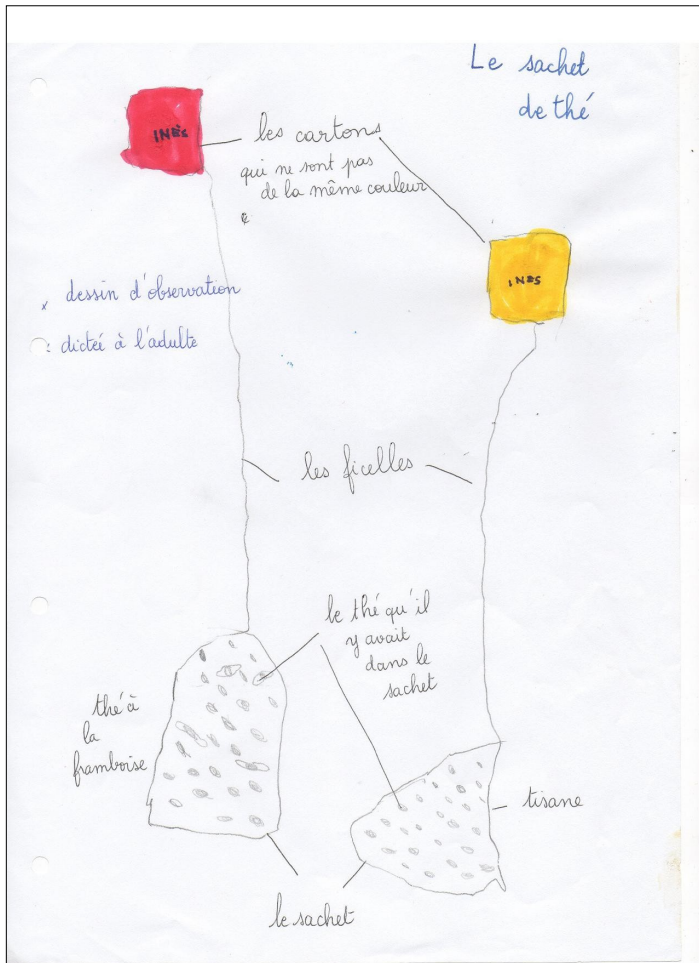 Le sachet
de thé
INÈS
les cartons
qui ne sont pas
de la même couleur
INES
dessin d'observation
dictée à l'adulte
les ficelles
le thé qu'il
y avait
dans le
sachet
thé à
la
framboise
tisane
le sachet